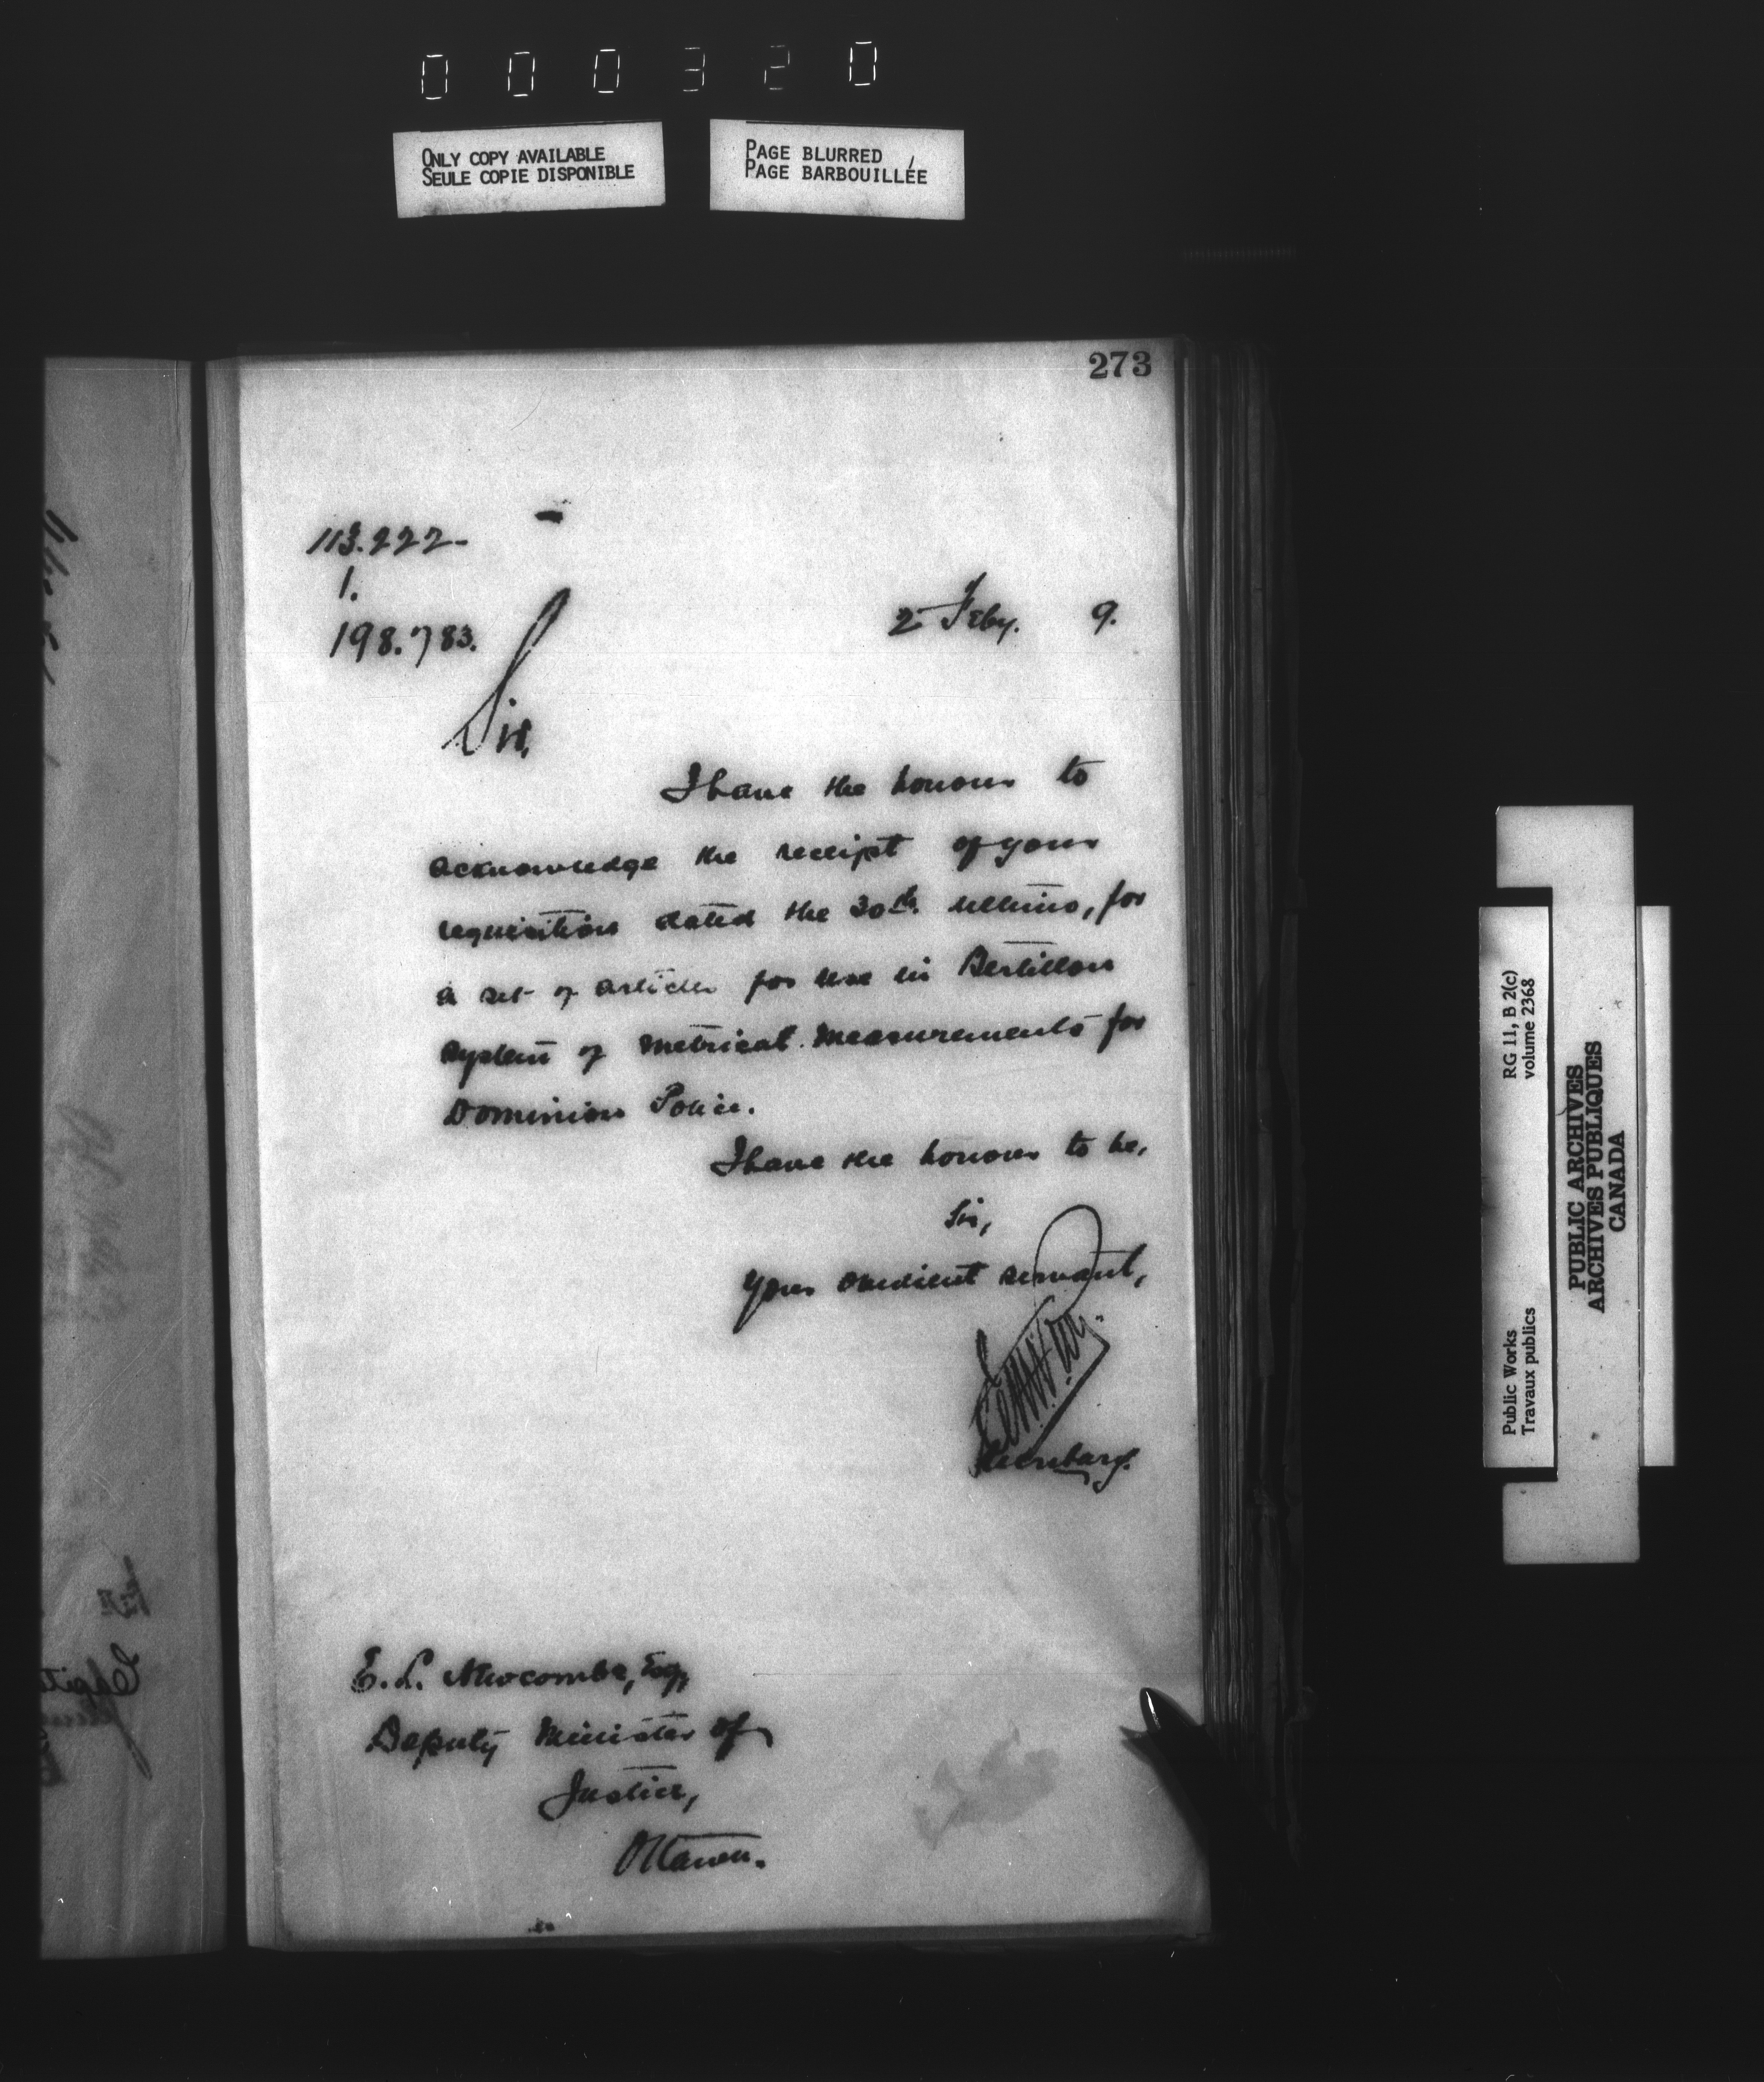 000320
ONLY COPY AVAILABLE
SEULE COPIE DISPONIBLE
PAGE BLURRED
PAGE BARBOUILLÉE
273
113.222-
1.
198.783.
2 Feby. 9.
Sir,
I have the honour to
acknowledge the receipt of your
requisition dated the 30th. ultimo, for
a set of articles for use in Bertillon
system of Metrical Measurements for
Dominion Police.
I have the honour to be,
Sir,
Your obedient servant,
Secretary.
E. L. Newcombe, Esq,
Deputy Minister of
Justice,
Ottawa.
Public Works
Travaux publics
RG 11, B 2(c)
volume 2368
PUBLIC ARCHIVES
ARCHIVES PUBLIQUES
CANADA